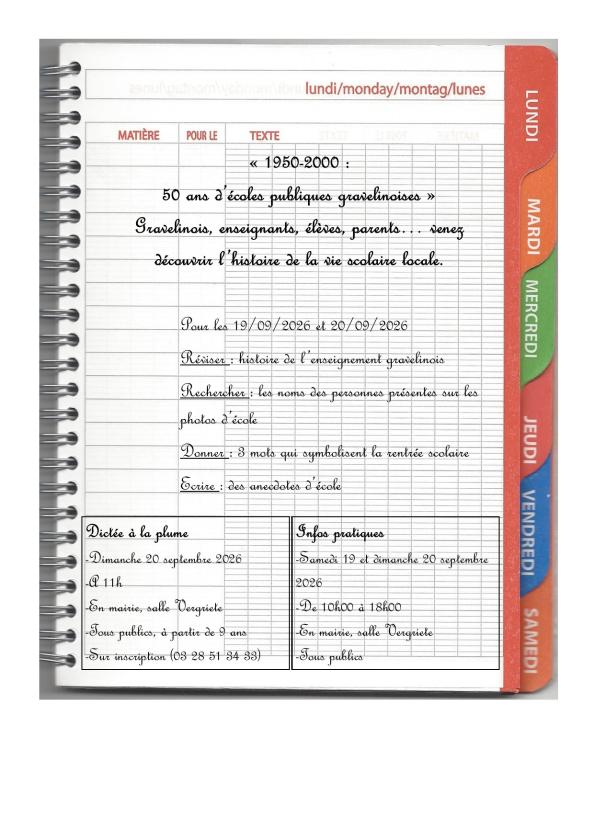 lundi/monday/montag/lunes
MATIÈRE POUR LE TEXTE
« 1950-2000 :
50 ans d'écoles publiques gravelinoises »
Gravelinois, enseignants, élèves, parents... venez
découvrir l'histoire de la vie scolaire locale.
Pour les 19/09/2026 et 20/09/2026
Réviser : histoire de l'enseignement gravelinois
Rechercher : les noms des personnes présentes sur les
photos d'école
Donner : 3 mots qui symbolisent la rentrée scolaire
Ecrire : des anecdotes d'école
Dictée à la plume
-Dimanche 20 septembre 2026
-A 11h
-En mairie, salle Vergriete
-Tous publics, à partir de 9 ans
-Sur inscription (03 28 51 34 33)
Infos pratiques
-Samedi 19 et dimanche 20 septembre
2026
-De 10h00 à 18h00
-En mairie, salle Vergriete
-Tous publics
LUNDI
MARDI
MERCREDI
JEUDI
VENDREDI
SAMEDI